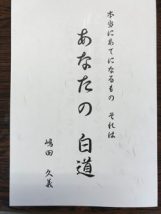 本当にあてになるもの それは
あなたの 白道
嶋田 久義